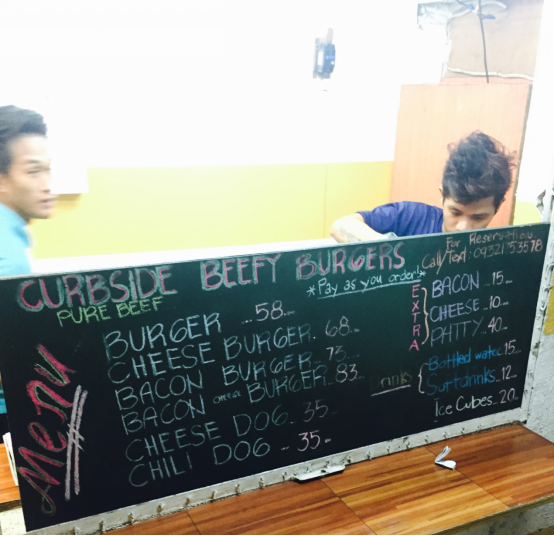 CURBSIDE BEEFY BURGERS
PURE BEEF
*Pay as you order!*
For Reservations
Call/Text: 09321753578
Menu
BURGER ...58..
CHEESE BURGER. 68..
BACON BURGER.. 73..
BACON cheese BURGER.. 83..
CHEESE DOG.. 35..
CHILI DOG ... 35..
EXTRA
BACON ..15..
CHEESE ..10..
PATTY..40..
Drinks
Bottled water 15..
Softdrinks..12..
Ice Cubes..20..